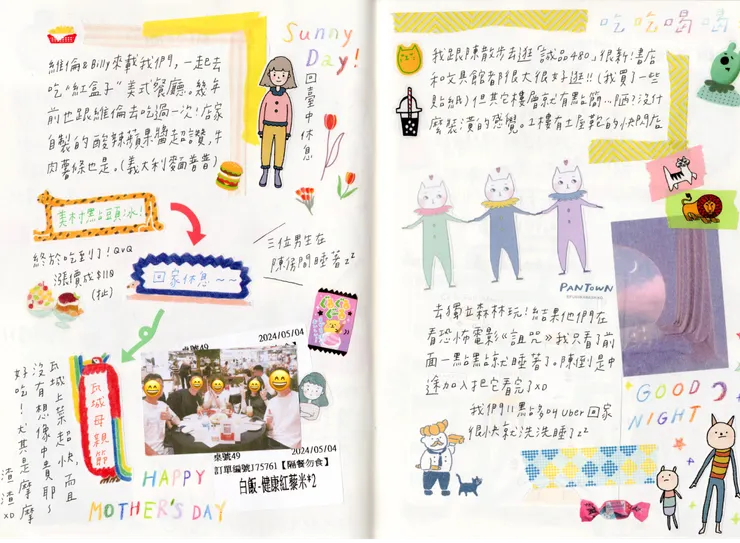 Sunny
Day!
回臺中休息
維倫&Billy來載我們,一起去
吃"紅盒子"美式餐廳。幾年
前也跟維倫去吃過一次!店家
自製的酸辣蘋果醬超讚,牛
肉薯條也是。(義大利麵普普)
美村點頭冰!
終於吃到了!QvQ
漲價成$110
(扯)
回家休息~~
三位男生在
陳房間睡著zz
瓦城母親節
瓦城上菜超快,而且
沒有想像中貴耶~
好吃!尤其是摩摩
渣渣XD
桌號49
2024/05/04
桌號49
2024/05/04
訂單編號J75761【隔餐勿食】
白飯-健康紅藜米*2
HAPPY
MOTHER'S DAY
吃吃喝喝
我跟陳散步去逛「誠品480」很新!書店
和文具館都很大很好逛!!(我買了一些
貼紙)但其它樓層就有點簡...陋?沒什
麼裝潢的感覺。1樓有土屋鞄的快閃店
PANTOWN
去獨立森林玩!結果他們在
看恐怖電影《詛咒》我只看了前
面一點點就睡著了。陳倒是中
途加入把它看完了XD
我們11點多叫Uber回家
很快就洗洗睡了zz
GOOD
NIGHT